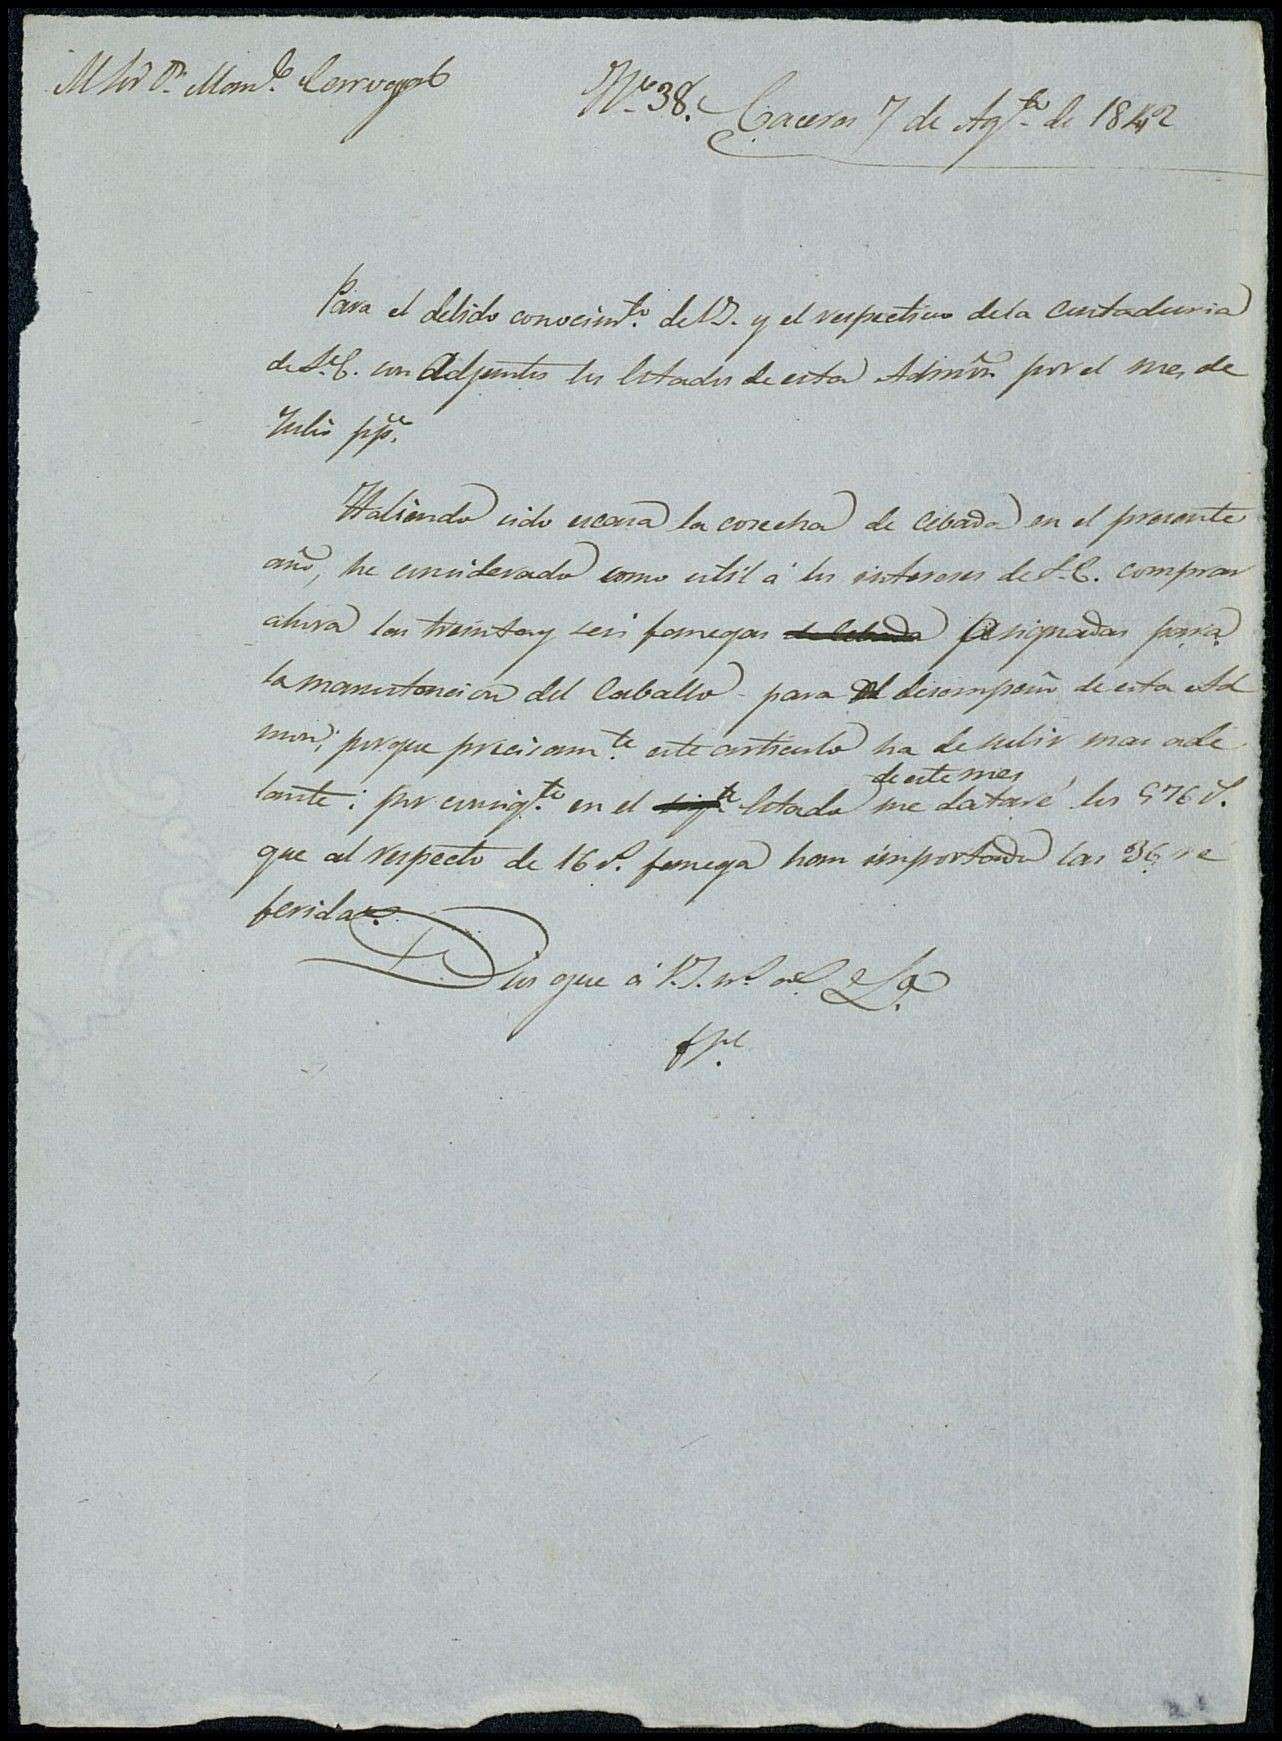 Nº 38. Caceres 7 de Agto de 1842
Para el debido conocimto. de V.S. y el respectivo de la Contaduria
de S.E. son adjuntos los Estados de esta Admon por el mes de
Julio pp.
Habiendo sido escasa la cosecha de cebada en el presente
año, he considerado como util á los intereses de S.E. comprar
ahora las treinta y seis fanegas de Cebada asignadas para
la manutencion del Caballo para el desempeño de esta Ad
mon; porque precisamte. este articulo ha de subir mas ade
lante: por consigte. en el Estado de este mes me dataré los 576 rs.
que al respecto de 16 rs. fanega han importado las 36 re
feridas.
Dios gue á V.S. ms. as.